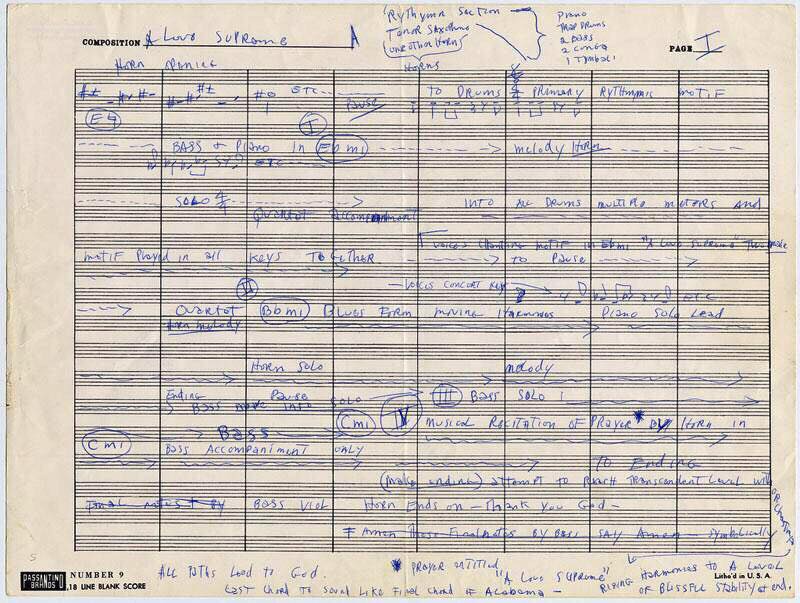 Rythymn Section
Tenor Saxophone
(one other horn)
Horns
Piano
Trap Drums
2 Bass
2 Conga
1 Tymbali
COMPOSITION A Love Supreme
PAGE I
Horn opening
ETC
PAUSE
TO DRUMS PRIMARY RYTHYMIC MOTIF
E 4
I
BASS & PIANO in Ebmi
melody Horn
ETC
SOLO
Quartet Accompaniment
INTO ALL DRUMS MULTIPLE METERS AND
VOICES Chanting MOTIF in Ebmi "A Love Supreme"
motif Played in all KEYS TOGETHER
TO PAUSE
II
VOICES CONCERT KEY
ETC
Quartet Bbmi BLUES FORM MOVING HARMONIES PIANO SOLO LEAD
Horn melody
HORN SOLO
melody
ENDING PAUSE
BASS move INTO SOLO
III BASS SOLO 1
BASS
Cmi IV MUSICAL RECITATION OF PRAYER * BY HORN in
Cmi
BASS ACCOMPANIMENT ONLY
TO ENDING
(make ending) attempt to REACH TRANSCENDENT Level with ORCHESTRA
Final notes + BY BASS VIOL
Horn Ends on — Thank you God —
Amen These Final notes BY BASS SAY Amen — Symbolically
RISING HARMONIES TO A LEVEL
OF BLISSFUL STABILITY at end.
* PRAYER entitled
"A Love SUPREME"
ALL PATHS Lead to God.
LAST Chord to Sound Like Final Chord of Alabama —
PASSANTINO BRANDS
NUMBER 9
18 LINE BLANK SCORE
Litho'd in U. S. A.